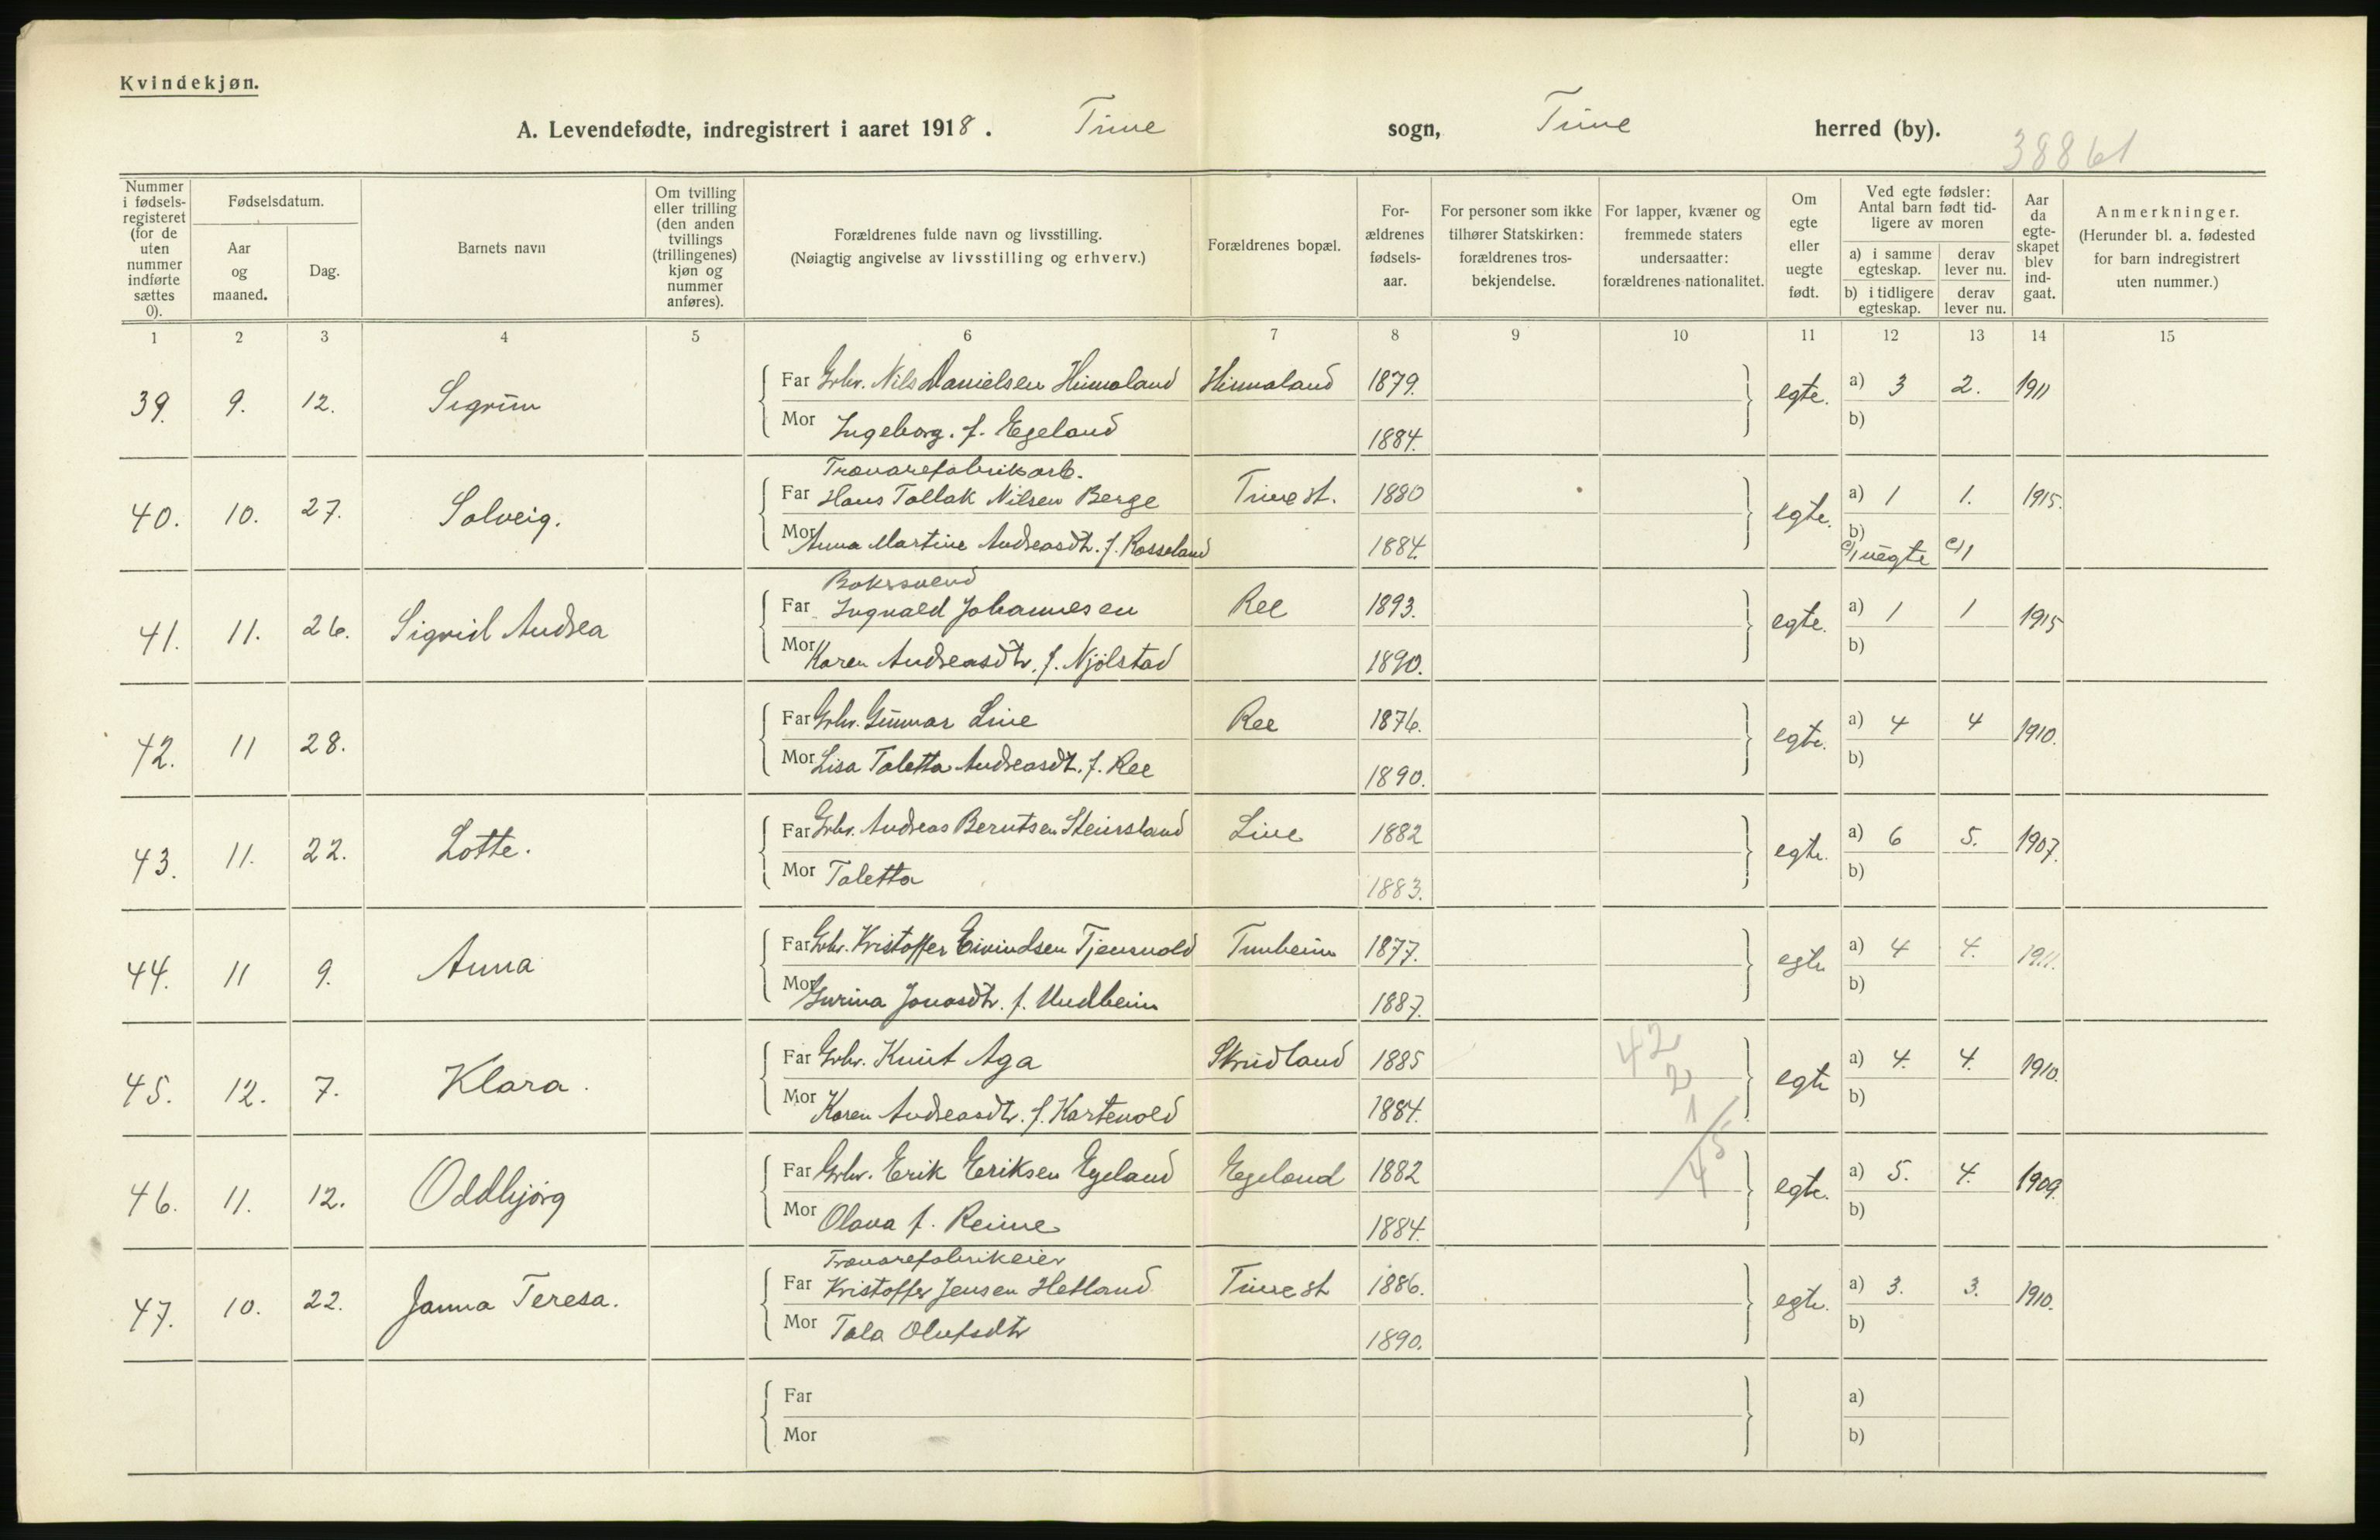 Kvindekjøn.
A. Levendefødte, indregistrert i aaret 1918. Time sogn, Time herred (by).
38861
Nummer i fødsels-registeret (for de uten nummer indførte sættes 0).
Fødselsdatum.
Aar og maaned.
Dag.
Barnets navn
Om tvilling eller trilling (den anden tvillings (trillingenes) kjøn og nummer anføres).
Forældrenes fulde navn og livsstilling.
(Nøiagtig angivelse av livsstilling og erhverv.)
Forældrenes bopæl.
For-ældrenes fødsels-aar.
For personer som ikke tilhører Statskirken: forældrenes tros-bekjendelse.
For lapper, kvæner og fremmede staters undersaatter: forældrenes nationalitet.
Om egte eller uegte født.
Ved egte fødsler: Antal barn født tid-ligere av moren
a) i samme egteskap. derav lever nu.
b) i tidligere egteskap. derav lever nu.
Aar da egte-skapet blev ind-gaat.
Anmerkninger.
(Herunder bl. a. fødested for barn indregistrert uten nummer.)
1 2 3 4 5 6 7 8 9 10 11 12 13 14 15
39. 9. 12. Sigrun Far Grbr. Nils Danielsen Hinnaland Hinnaland 1879. egte. a) 3 2. 1911
Mor Ingeborg. f. Egeland 1884. b)
Trævarefabrikarb.
40. 10. 27. Solveig. Far Hans Tollak Nilsen Berge Time st. 1880 egte. a) 1 1. 1915.
Mor Anna Martine Andreasdtr. f. Rosseland 1884. b)
c/1 uegte c/1
Bokrsvend
41. 11. 26. Sigrid Andrea Far Ingvald Johannesen Ree 1893. egte. a) 1 1 1915
Mor Karen Andreasdtr. f. Njølstad 1890. b)
42. 11 28. Far Grbr. Gunnar Line Ree 1876. egte. a) 4 4 1910.
Mor Lisa Taletta Andreasdt. f. Ree 1890. b)
43. 11. 22. Lotte. Far Grbr. Andreas Berntsen Steinsland Line 1882 egte. a) 6 5. 1907.
Mor Taletta 1883. b)
44. 11 9. Anna Far Grbr. Kristoffer Eivindsen Tjensvold Tunheim 1877. egte a) 4 4. 1911.
Mor Gurina Jonasdtr. f. Undheim 1887. b)
45. 12. 7. Klara. Far Grbr. Knut Aga Skrudland 1885 egte a) 4. 4. 1910.
Mor Karen Andreasdtr. f. Kartevold 1884. b)
42
2
1
45
46. 11. 12. Oddbjørg Far Grbr. Erik Eriksen Egeland Egeland 1882 egte. a) 5. 4. 1909.
Mor Olava f. Reime 1884. b)
Trævarefabrikeier
47. 10. 22. Janna Teresa. Far Kristoffer Jensen Hetland Time st 1886. egte. a) 3. 3. 1910.
Mor Tala Olufsdtr 1890. b)
Far a)
Mor b)